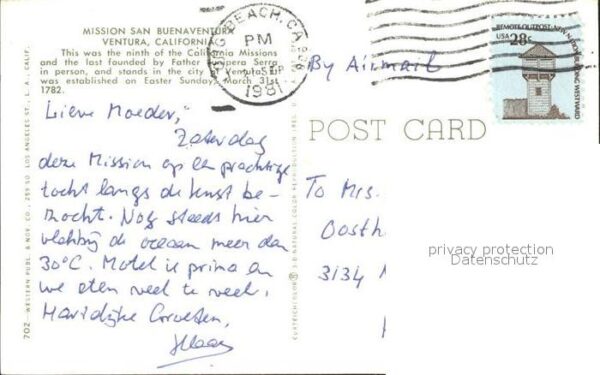 MISSION SAN BUENAVENTURA
VENTURA, CALIFORNIA
This was the ninth of the California Missions
and the last founded by Father Junipera Serra
in person, and stands in the city of Ventura. It
was established on Easter Sunday, March 31st
1782.
Lieve Moeder,"
Zaterdag
deze Mission op een prachtige
tocht langs de kust be-
zocht. Nog steeds hier
vlakbij de oceaan meer dan
30°C. Motel is prima en
we eten veel te veel.
Hartelijke Groeten,
LONG BEACH, CA
PM
SEP
1981
By Airmail
REMOTE OUTPOST, NEW NATION BUILDING WESTWARD
USA 28c
POST CARD
To Mrs.
Oosth
3134
privacy protection
Datenschutz
702 - WESTERN PUBL. & NOV. CO., 259 SO. LOS ANGELES ST., L. A., CALIF.